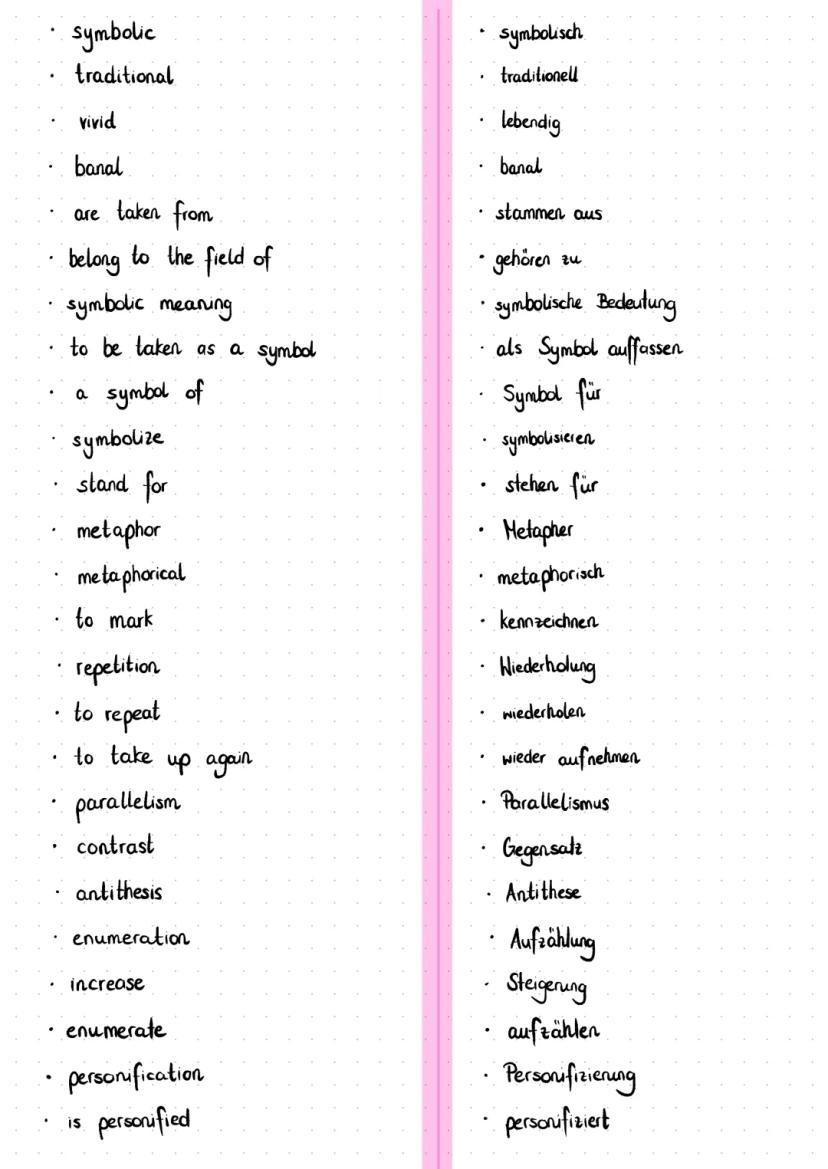 · symbolic
· traditional
· vivid
· banal
· are taken from
· belong to the field of
· symbolic meaning
· to be taken as a symbol
· a symbol of
· symbolize
· stand for
· metaphor
· metaphorical
· to mark
· repetition
· to repeat
· to take up again
· parallelism
· contrast
· antithesis
· enumeration
· increase
· enumerate
· personification
· is personified
· symbolisch
· traditionell
· lebendig
· banal
· stammen aus
· gehören zu
· symbolische Bedeutung
· als Symbol auffassen
· Symbol für
· symbolisieren
· stehen für
· Metapher
· metaphorisch
· kennzeichnen
· Wiederholung
· wiederholen
· wieder aufnehmen
· Parallelismus
· Gegensatz
· Antithese
· Aufzählung
· Steigerung
· aufzählen
· Personifizierung
· personifiziert